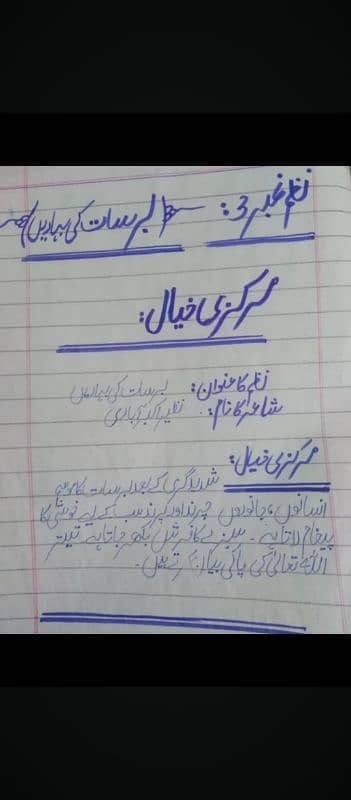 نظم نمبر 3: (برسات کی بہاریں)
مرکزی خیال:
نظم کا عنوان: برسات کی بہاریں
شاعر کا نام: نظیر اکبر آبادی
مرکزی خیال: شدید گرمی کے بعد برسات کا موسم
انسانوں، جانوروں چرند اور پرند سب کے لیے خوشی کا
پیغام لاتا ہے۔ سبزے کا فرش بچھ جاتا ہے تیتر
اللہ تعالیٰ کی پاکی بیان کرتے ہیں۔